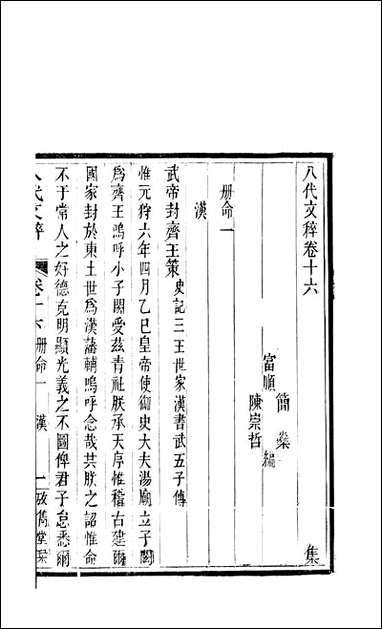 八代文稡卷十六
富順 簡燊 編 集
陳崇哲
册命一
漢
武帝封齊王策史記三王世家漢書武五子傳
惟元狩六年四月乙巳皇帝使御史大夫湯廟立子閎
爲齊王嗚呼小子閎受茲青社朕承天序惟稽古建爾
國家封於東土世爲漢藩輔嗚呼念哉共朕之詔惟命
不于常人之好德克明顯光義之不圖俾君子怠悉爾
八代文稡 卷十六册命一 漢 一